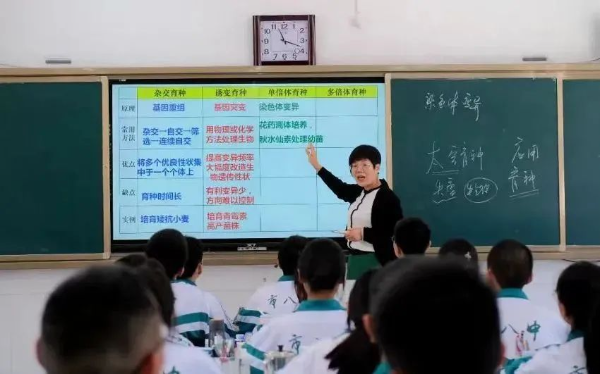 杂交育种 诱变育种 单倍体育种 多倍体育种
原理 基因重组 基因突变 染色体变异
常用方法 杂交→自交→筛选→连续自交 用物理或化学方法处理生物 花药离体培养，秋水仙素处理幼苗
优点 将多个优良性状集中于一个个体上 提高变异频率 大幅度改造生物遗传性状
缺点 育种时间长 有利变异少，方向难以控制
实例 培育矮抗小麦 培育青霉素高产菌株
染色体变异
太空育种 应用
育种
市八
八中